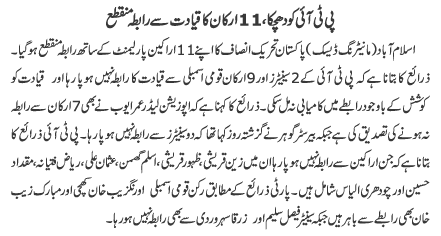 پی ٹی آئی کو دھچکا، 11 ارکان کا قیادت سے رابطہ منقطع
اسلام آباد (مانیٹرنگ ڈیسک) پاکستان تحریک انصاف کا اپنے 11 اراکین پارلیمنٹ کے ساتھ رابطہ منقطع ہو گیا۔
ذرائع کا بتانا ہے کہ پی ٹی آئی کے 2 سینیٹرز اور 9 ارکان قومی اسمبلی سے قیادت کا رابطہ نہیں ہو پا رہا اور قیادت کو
کوشش کے باوجود رابطے میں کامیابی نہ مل سکی۔ ذرائع کا کہنا ہے کہ اپوزیشن لیڈر عمر ایوب نے بھی 7 ارکان سے رابطہ
نہ ہونے کی تصدیق کی ہے جبکہ بیرسٹر گوہر نے گزشتہ روز کہا تھا کہ دو سینیٹرز سے رابطہ نہیں ہو پا رہا۔ پی ٹی آئی ذرائع کا
بتانا ہے کہ جن اراکین سے رابطہ نہیں ہو پا رہا ان میں زین قریشی، ظہور قریشی، اسلم گھمن، عثمان علی، ریاض فتیانہ، مقداد
حسین اور چودھری الیاس شامل ہیں۔ پارٹی ذرائع کے مطابق رکن قومی اسمبلی اورنگزیب خان کھچی اور مبارک زیب
خان بھی رابطے سے باہر ہیں جبکہ سینیٹر فیصل سلیم اور زرقا سہروردی سے بھی رابطہ نہیں ہو رہا۔